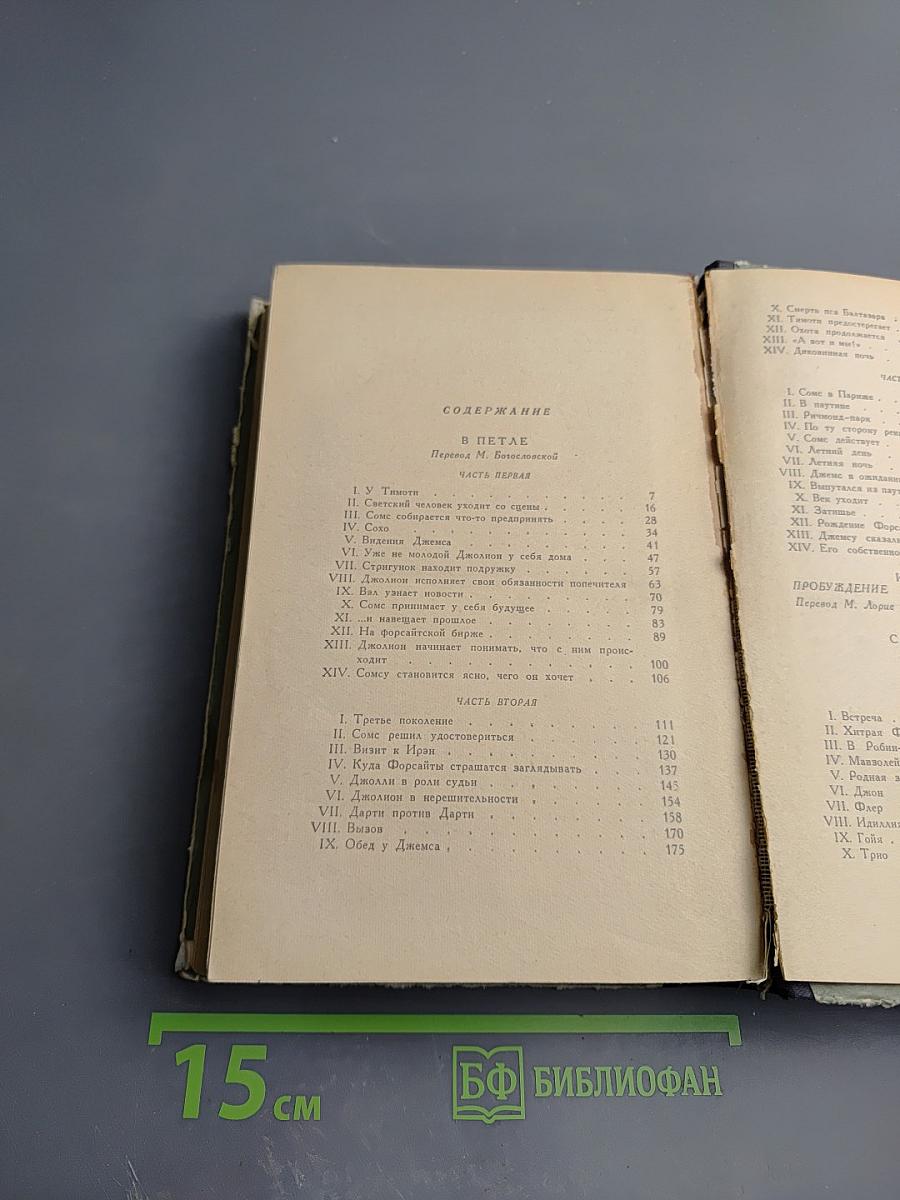 СОДЕРЖАНИЕ
В ПЕТЛЕ
Перевод М. Богословской
ЧАСТЬ ПЕРВАЯ
I. У Тимоти 7
II. Светский человек уходит со сцены 16
III. Сомс собирается что-то предпринять 28
IV. Сохо 34
V. Видения Джемса 41
VI. Уже не молодой Джолион у себя дома 47
VII. Стригунок находит подружку 57
VIII. Джолион исполняет свои обязанности попечителя 63
IX. Вэл узнает новости 70
X. Сомс принимает у себя будущее 79
XI. ...и навещает прошлое 83
XII. На форсайтской бирже 89
XIII. Джолион начинает понимать, что с ним проис-
ходит 100
XIV. Сомсу становится ясно, чего он хочет 106
ЧАСТЬ ВТОРАЯ
I. Третье поколение 111
II. Сомс решил удостовериться 121
III. Визит к Ирэн 130
IV. Куда Форсайты страшатся заглядывать 137
V. Джолли в роли судьи 145
VI. Джолион в нерешительности 154
VII. Дарти против Дарти 158
VIII. Вызов 170
IX. Обед у Джемса 175
X. Смерть пса Балтазара
XI. Тимоти предостерегает
XII. Охота продолжается
XIII. «А вот и мы!»
XIV. Диковинная ночь
ЧАСТ
I. Сомс в Париже
II. В паутине
III. Ричмонд-парк
IV. По ту сторону рек
V. Сомс действует
VI. Летний день
VII. Летняя ночь
VIII. Джемс в ожидани
IX. Выпутался из паут
X. Век уходит
XI. Затишье
XII. Рождение Форс
XIII. Джемсу сказал
XIV. Его собственно
ПРОБУЖДЕНИЕ
Перевод М. Лорие
С
I. Встреча
II. Хитрая Ф
III. В Робин-
IV. Мавзолей
V. Родная з
VI. Джон
VII. Флер
VIII. Идиллия
IX. Гойя
X. Трио
15 см
БФ БИБЛИОФАН